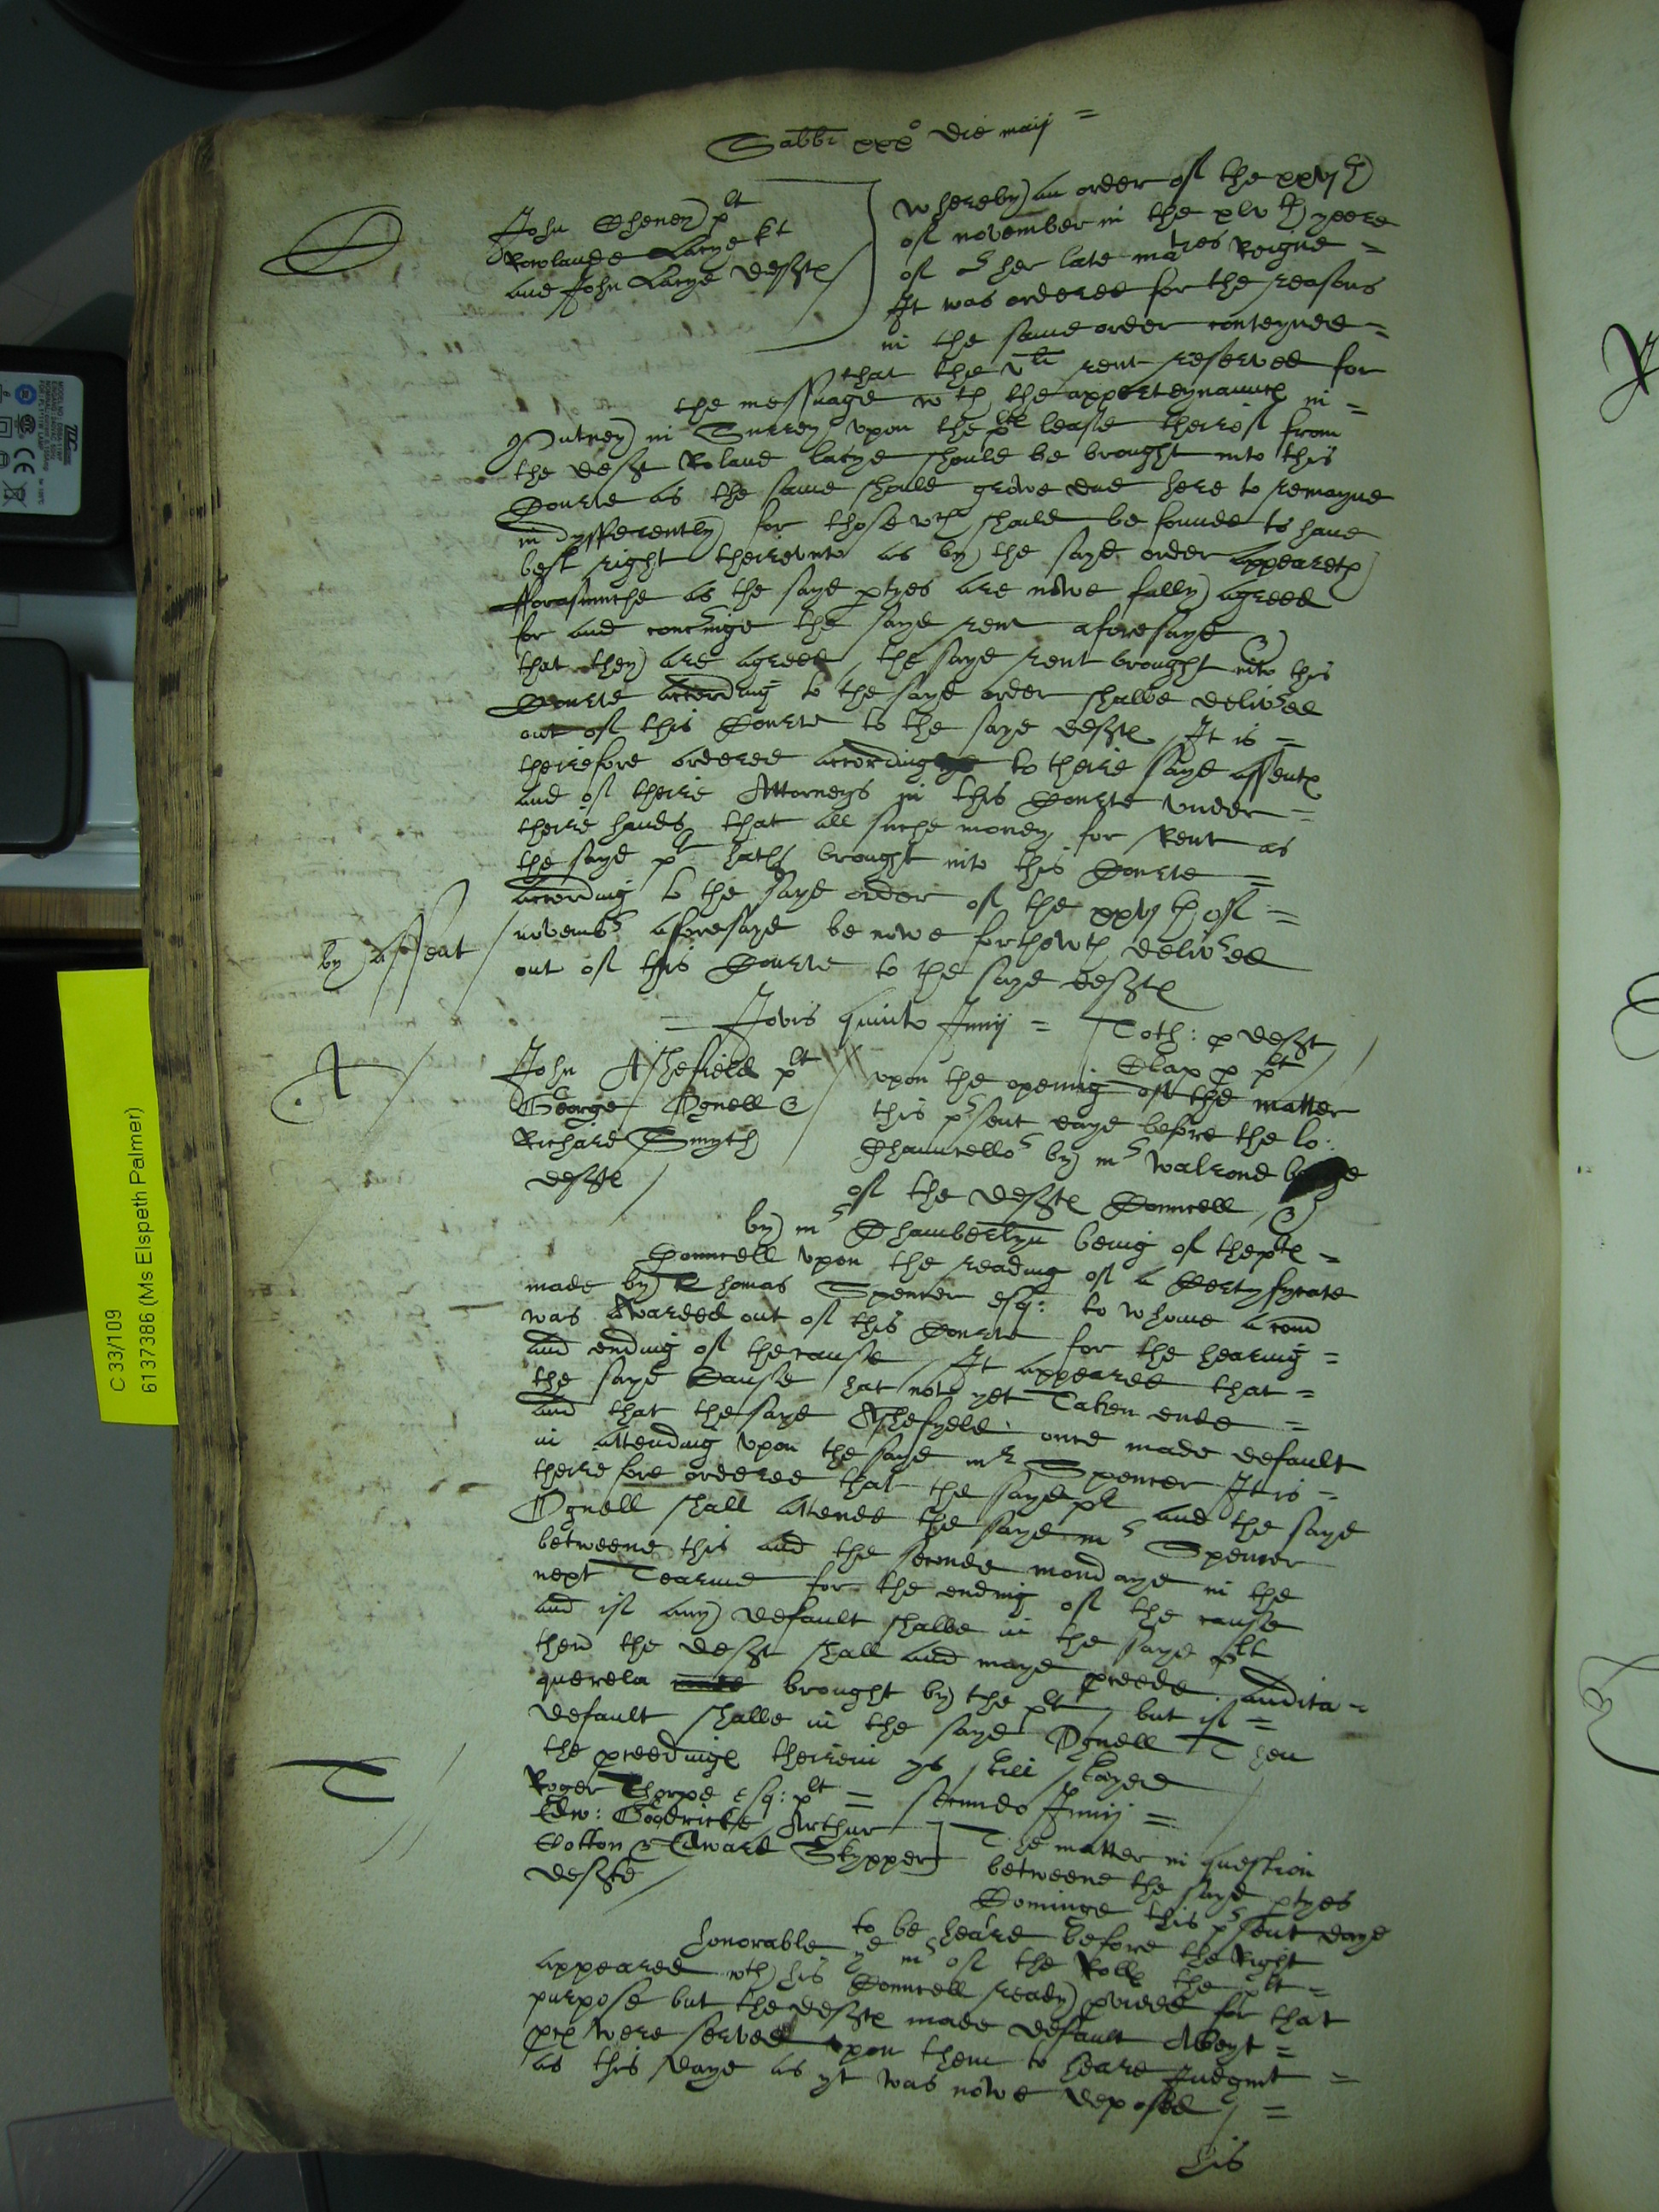 Sabbi xxx° die maij =
John Cheney plt
Rowlande Lacye kt
and John Lacye defts
whereby an order of the xxvjth
of november in the xlvth yeere
of her late maties Reigne =
It was ordered for the reasons
in the same order conteyned =
that the vli rent reserved for
the messuage wth the apperteynaunces in =
Putney in Surrey upon the plts lease theirof from
the deft Roland lacye should be brought into this
Courte as the same should growe due here to remayne
indyfferently for those wch should be founde to have
best right theireunto as by the saye order appeareth
fforasmuche as the saye ptyes are nowe fully agreed
for and concrninge the saye rent aforesaye &
that they are agreed, the saye rent brought into this
Courte according to the saye order shalbe delivred
out of this Courte to the saye defts, It is =
theirefore ordered according to theire saye assents
and of theire Attorneys in this Courte under =
theire hands that all suche money for Rent as
the saye plt hath brought into this Courte =
according to the saye order of the xxvjth of =
novembr aforesaye be nowe forthewth delivred
by assent
out of this Courte to the saye defts
= Jovis quinto Junij =
Toth: p deft
Clap p plt
John Ashefield plt
George Ognell &
Richard Smyth
defts
upon the opening of the matter
this prsent daye before the lo:
Chauncellor by mr Walrond
of the defts Councell, &
by mr Chamberlyn being of the plts =
Councell upon the reading of a Certyfycate
made by Thomas Spencer esq: to whome a com
was Awarded out of this Courte for the hearing =
and ending of the cause, It appeared that =
the saye Cause hat not yet Taken ende =
and that the saye Ashefyeld once made default
in attending upon the saye mr Spencer It is =
theirefore ordered that the saye plt and the saye
Ognell shall attende the saye mr Spencer
betweene this and the seconde mondaye in the
next Tearme for the ending of the cause
and if any default shalbe in the saye plt
then the deft shall and maye pceede audita =
querela brought by the plt, but if =
default shalbe in the saye Ognell Then
the pceedings theirein ys still stayed
Roger Thorpe esq: plt = secundo Junij =
Edw: Goodricke Arthur
Cotton & Edward Skypper
defts
The matter in question
betweene the saye ptyes
Cominge this prsent daye
to be heard before the Right
honorable ye mr of the Rolls the plt =
appeared wth his Councell ready pvided for that
purpose but the defts made default Albeyt =
pces were served upon them to heare Judgmt =
as this daye as yt was nowe deposed, =
his
C 33/109
61377386 (Ms Elspeth Palmer)